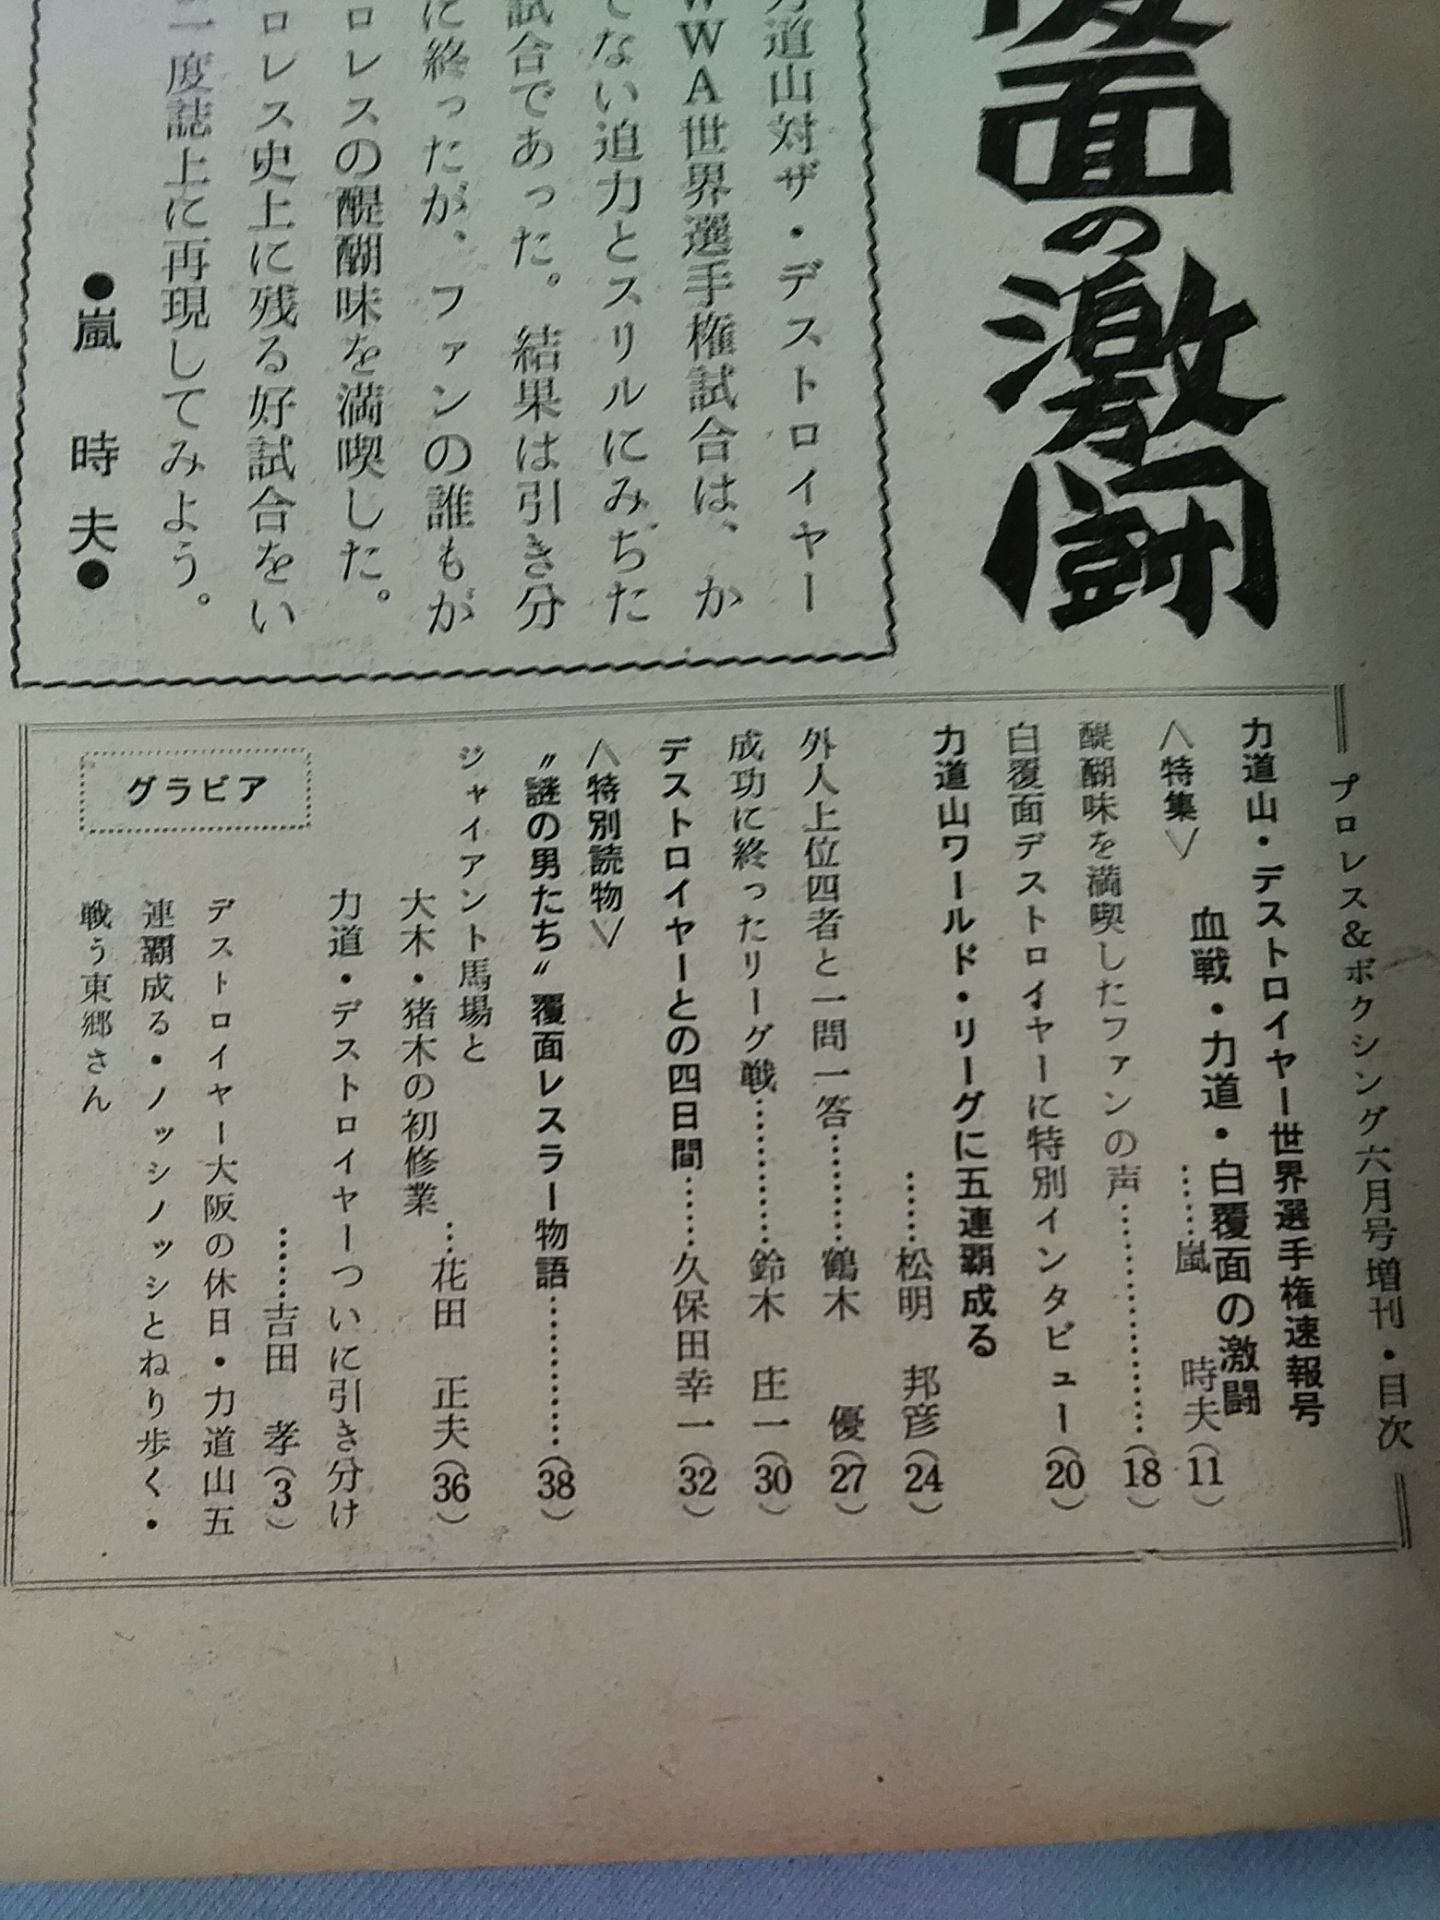 面の激闘
力道山対ザ・デストロイヤー
WWA世界選手権試合は、か
てない迫力とスリルにみちた
試合であった。結果は引き分
に終ったが、ファンの誰もが
ロレスの醍醐味を満喫した。
ロレス史上に残る好試合をい
一度誌上に再現してみよう。
●嵐 時夫●
プロレス&ボクシング六月号増刊・目次
力道山・デストロイヤー世界選手権速報号
<特集> 血戦・力道・白覆面の激闘
……嵐 時夫(11)
醍醐味を満喫したファンの声…………(18)
白覆面デストロイヤーに特別インタビュー(20)
力道山ワールド・リーグに五連覇成る
……松明 邦彦(24)
外人上位四者と一問一答………鶴木 優(27)
成功に終ったリーグ戦…………鈴木 庄一(30)
デストロイヤーとの四日間……久保田幸一(32)
<特別読物>
〃謎の男たち〃覆面レスラー物語…………(38)
ジャイアント馬場と
大木・猪木の初修業…花田 正夫(36)
グラビア
力道・デストロイヤーついに引き分け
……吉田 孝(3)
デストロイヤー大阪の休日・力道山五
連覇成る・ノッシノッシとねり歩く・
戦う東郷さん